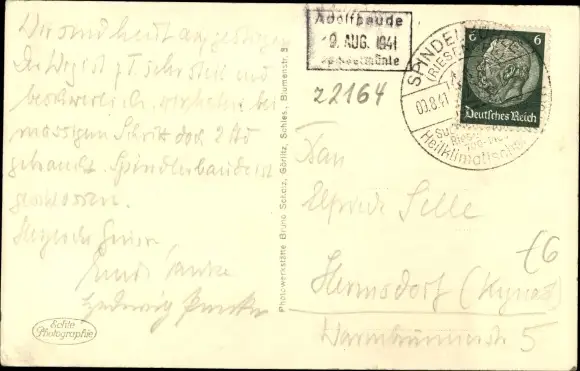 Wir sind heut aufgestiegen
Der Weg ist z.T. sehr steil und
beschwerlich, wir haben bei
mässigem Schritt doch 2 Std
gebraucht. Spindlerbaude ist
geschlossen.
Herzliche Grüsse
Hedwig
Echte
Photographie
Photowerkstätte Bruno Scholz, Görlitz, Schles., Blumenstr. 3
Adolfbaude
9. AUG. 1941
Spindelmühle
22164
SPINDELMÜHLE
(RIESENGEB)
09.8.41
Heilklimatischer
6
6
Deutsches Reich
Frau
Elfriede Selle
Hermsdorf (Kynast)
Warmbrunnerstr 5
£6